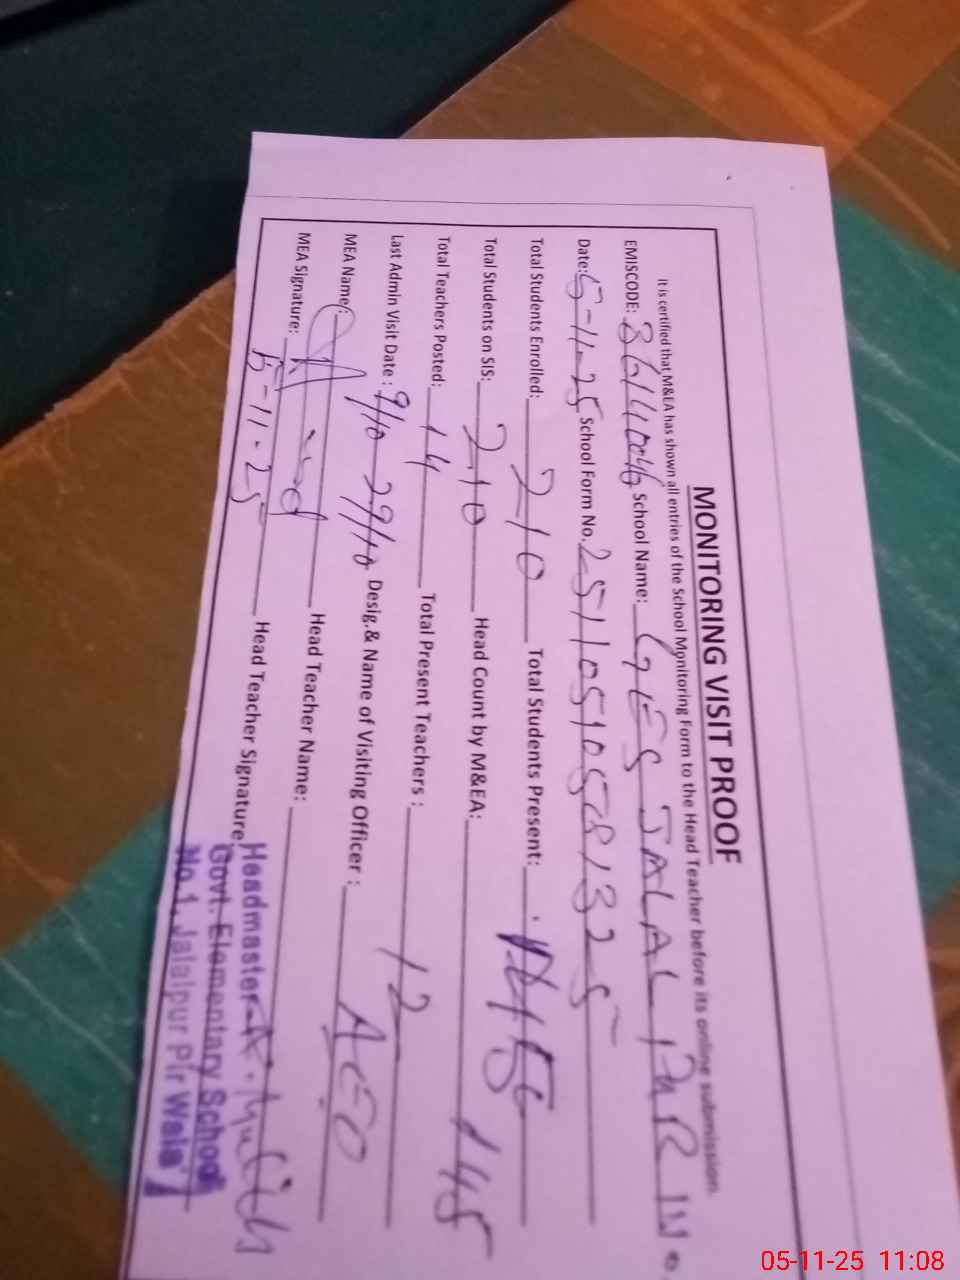 MONITORING VISIT PROOF
It is certified that M&EA has shown all entries of the School Monitoring Form to the Head Teacher before its online submission.
EMISCODE: School Name: GES JALAL PUR
Date: 5-11-25 School Form No. 25110510581325
Total Students Enrolled: 210 Total Students Present:
Total Students on SIS: 210 Head Count by M&EA: 145
Total Teachers Posted: 14 Total Present Teachers : 12
Last Admin Visit Date : 9/10 29/10 Desig.& Name of Visiting Officer : AEO
MEA Name: Head Teacher Name:
MEA Signature: 5-11-25 Head Teacher Signature
Headmaster
Govt. Elementary School
No.1, Jalalpur Pir Wala
05-11-25 11:08